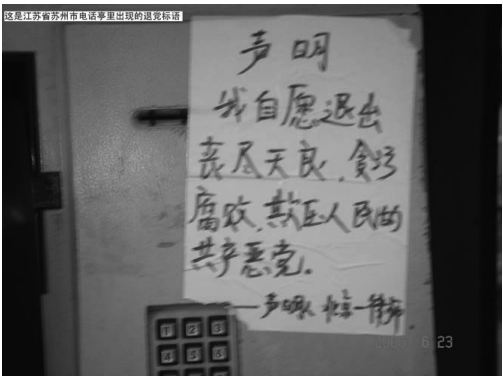 这是江苏省苏州市电话亭里出现的退党标语
声明
我自愿退出
丧尽天良，贪污
腐败，欺压人民的
共产恶党。
——声明人 北京一律师
1 2 3
4 5 6
6 23